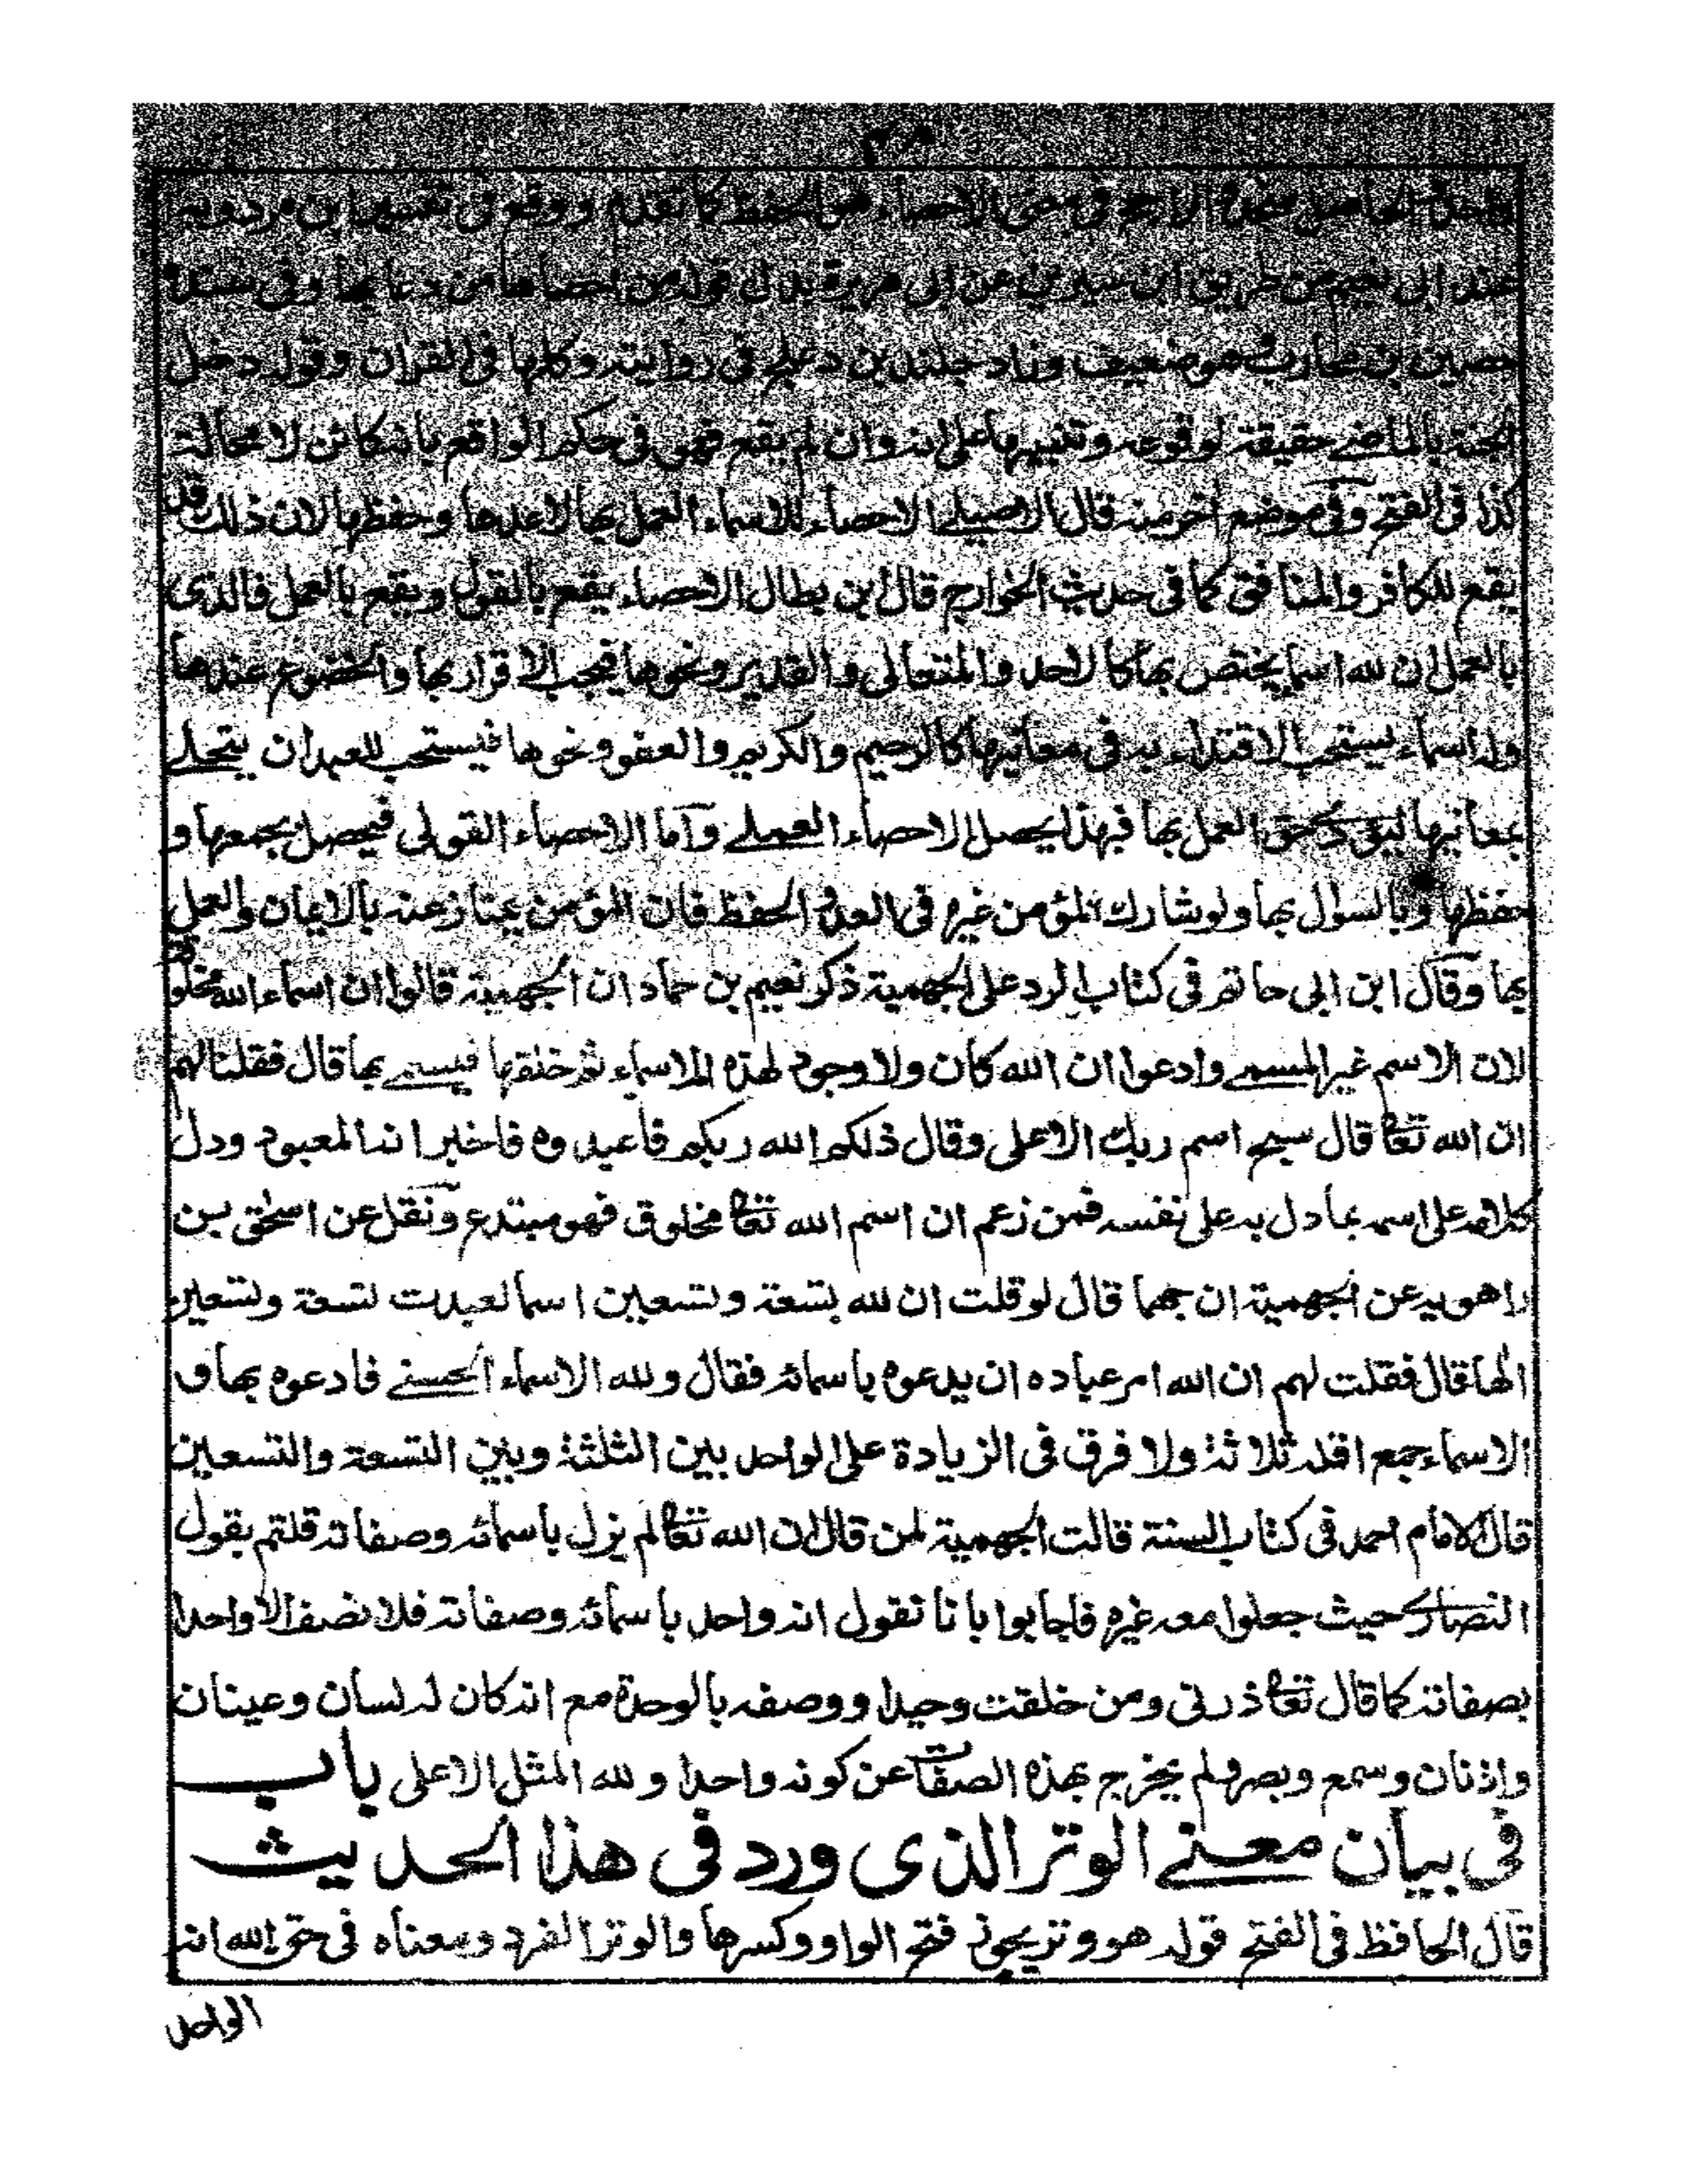 الحاصل الارجح فى معنى الاحصاء هو الحفظ كما تقدم ووقع فى تفسير ابن مردويه
عند ابى نعيم من طريق ابن سيرين عن ابى هريرة بدل قوله من احصاها من دعا بها وفى سنده
حصين بن مخارق وهو ضعيف وزاد خليد بن دعلج فى روايته وكلها فى القران وقوله دخل
الجنة بالماضے حقيقة لوقوعه وتنبيها على انه وان لم يقع فهو فى حكم الواقع بانه كائن لا محالة
كذا فى الفتح وفى موضع اخر منه قال الاصيلے الاحصاء للاسماء العمل بها لا عدها وحفظها لان ذلك قد
يقع للكافر والمنافق كما فى حديث الخوارج قال ابن بطال الاحصاء يقع بالقول ويقع بالعمل فالذى
بالعمل ان لله اسما يختص بها كالاحد والمتعالى والقدير ونحوها فيجب الاقرار بها والخضوع عندها
وله اسماء يستحب الاقتداء به فى معانيها كالرحيم والكريم والعفو ونحوها فيستحب للعبد ان يتحلے
بمعانيها ليؤدے حق العمل بها فبهذا يحصل الاحصاء العملے وآما الاحصاء القولى فيحصل بجمعها و
حفظها وبالسوال بها ولو شارك المؤمن غيره فى العد والحفظ فان المؤمن يمتاز عنه بالايمان والعمل
بها وقال ابن ابى حاتم فى كتاب الرد على الجهمية ذكر نعيم بن حماد ان الجهمية قالوا ان اسماء الله مخلوقة
لان الاسم غير المسمے وادعوا ان الله كان ولا وجود لهذه الاسماء ثم خلقها فيسمے بها قال فقلنا لهم
ان الله تعالى قال سبح اسم ربك الاعلى وقال ذلكم الله ربكم فاعبدوه فاخبر انه المعبود ودل
كلامه على اسمه بما دل به على نفسه فمن زعم ان اسم الله تعالى مخلوق فهو مبتدع ونقل عن اسحٰق بن
راهويه عن الجهمية ان جهما قال لو قلت ان لله تسعة وتسعين اسما لعبدت تسعة وتسعين
الٰها قال فقلت لهم ان الله امر عباده ان يدعوه باسمائه فقال ولله الاسماء الحسنے فادعوه بها و
الاسماء جمع اقله ثلاثة ولا فرق فى الزيادة على الواحد بين الثلثة وبين التسعة والتسعين
قال الامام احمد فى كتاب السنة قالت الجهمية لمن قال ان الله تعالى لم يزل باسمائه وصفاته قلتم بقول
النصارے حيث جعلوا معه غيره فاجابوا بانا نقول انه واحد باسمائه وصفاته فلا نصف الا واحدا
بصفاته كما قال تعالى ذرنى ومن خلقت وحيدا ووصفه بالوحدة مع انه كان له لسان وعينان
واذنان وسمع وبصر ولم يخرج بهذه الصفات عن كونه واحدا ولله المثل الاعلى باب
فى بيان معنے الوتر الذى ورد فى هذا الحديث
قال الحافظ فى الفتح قوله هو وتر يجوز فتح الواو وكسرها والوتر الفرد ومعناه فى حق الله انه
الواحد